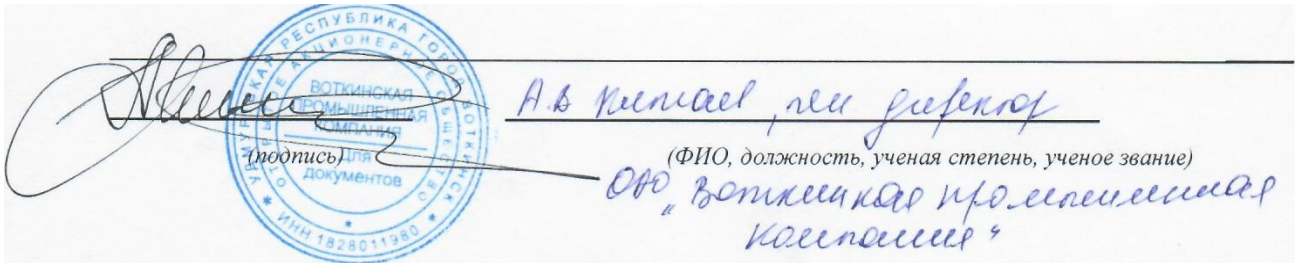 УДМУРТСКАЯ РЕСПУБЛИКА ГОРОД ВОТКИНСК
ОТКРЫТОЕ АКЦИОНЕРНОЕ ОБЩЕСТВО
ВОТКИНСКАЯ
ПРОМЫШЛЕННАЯ
КОМПАНИЯ
для
документов
ИНН 1828011980
А.В Китаев, ген директор
(подпись) (ФИО, должность, ученая степень, ученое звание)
ОАО „Воткинская промышленная
компания"